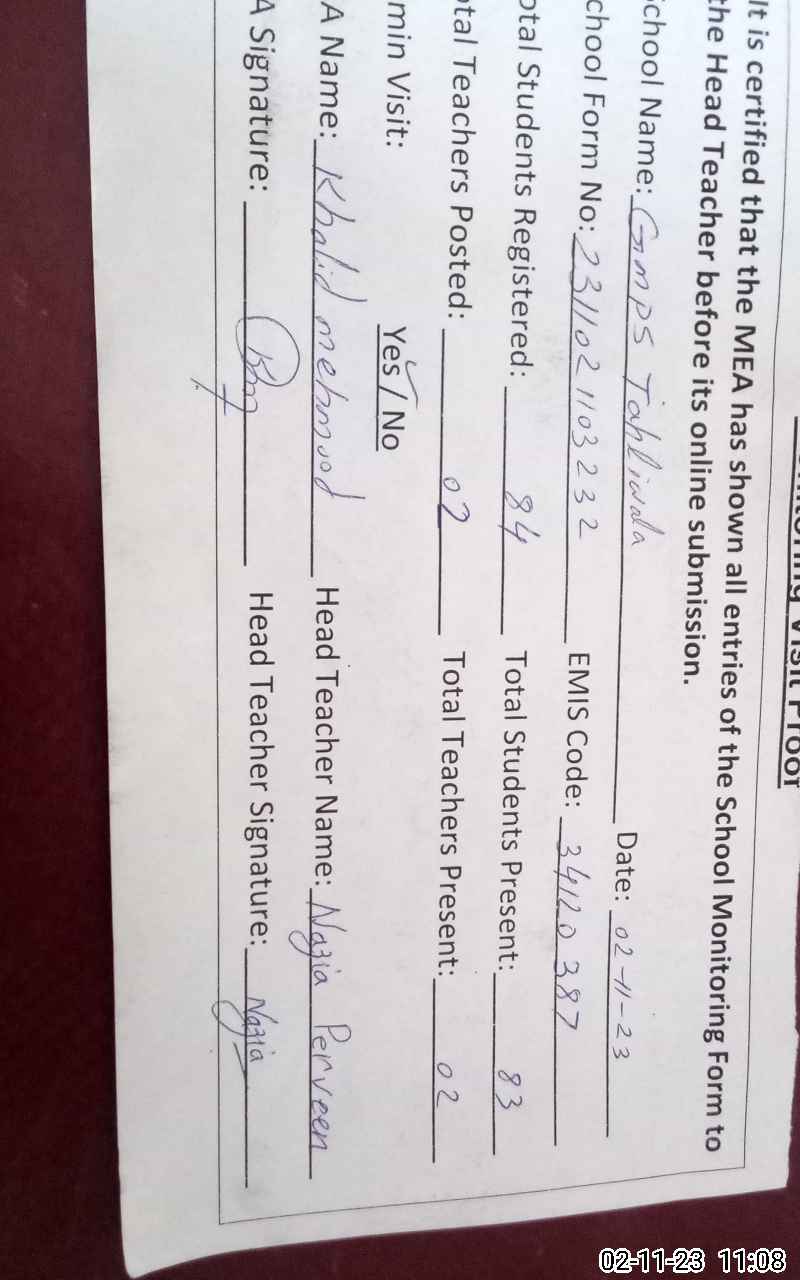 Visit Proof
It is certified that the MEA has shown all entries of the School Monitoring Form to
the Head Teacher before its online submission.
School Name: GMPS Tahliwala Date: 02-11-23
School Form No: 231102 1103232 EMIS Code: 34120387
otal Students Registered: 84 Total Students Present: 83
otal Teachers Posted: 02 Total Teachers Present: 02
min Visit: Yes / No
A Name: Khalid mehmood Head Teacher Name: Nazia Perveen
A Signature: Head Teacher Signature: Nazia
02-11-23 11:08